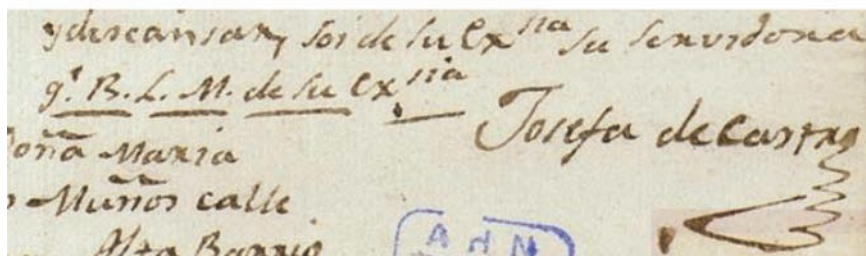 y descansar, soi de su Exsia su servidora
q.e B. L. M. de su Exsia
Josefa de Castro
Doña Maria
Muños calle
Alta Barrio
AHN